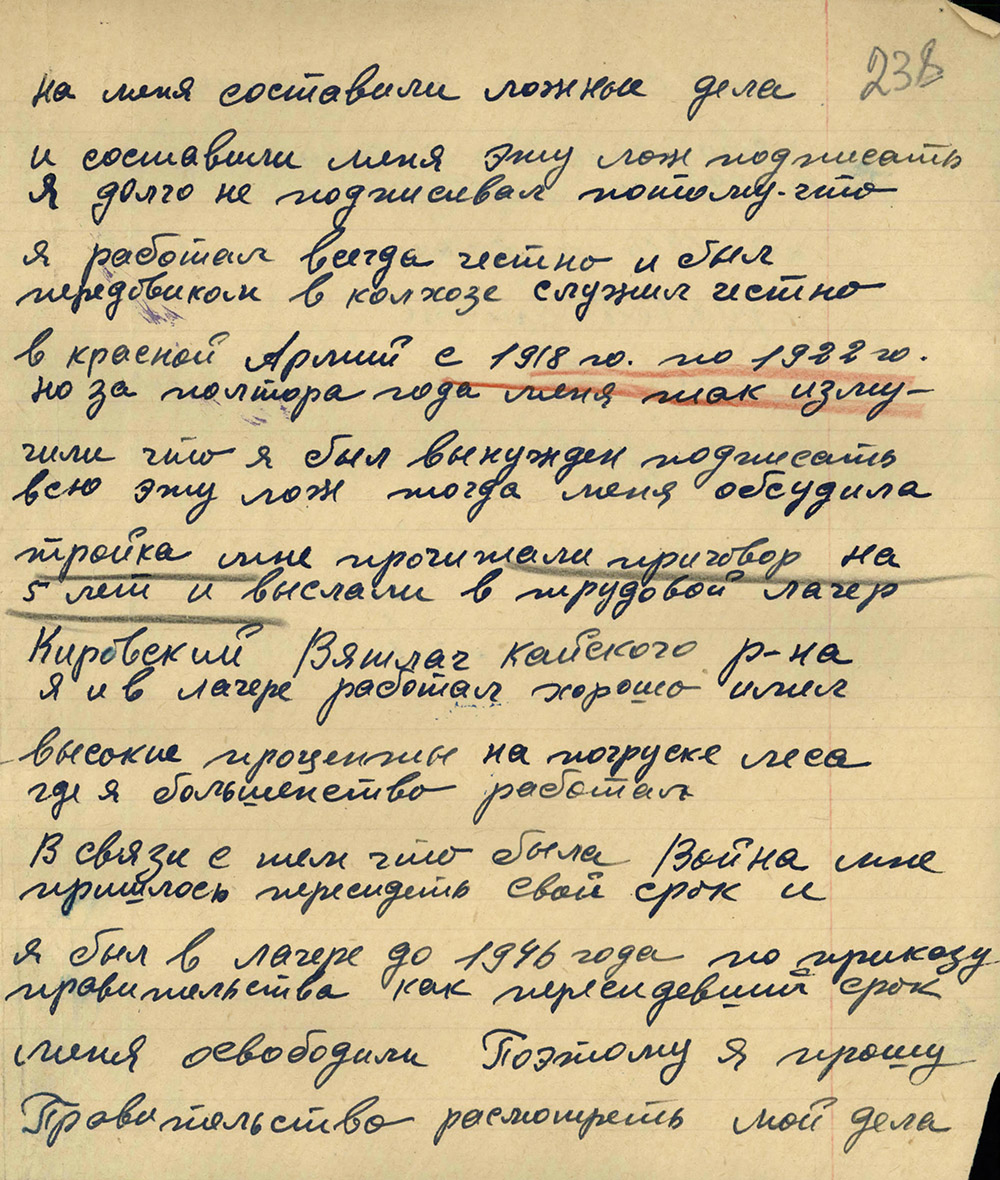 238
на меня составили ложные дела
и составили меня эту лож подписать
Я долго не подписывал потому-что
я работал всегда честно и был
передовиком в колхозе служил честно
в красной Армий с 1918 го. по 1922 го.
но за полтора года меня так изму-
чили что я был вынужден подписать
всю эту лож тогда меня обсудила
тройка мне прочитали приговор на
5 лет и выслали в трудовой лагер
Кировский Вятлаг Кайского р-на
я и в лагере работал хорошо имел
высокие проценты на погруске леса
где я большенство работал
В связи с тем что была Война мне
пришлось пересидеть свой срок и
я был в лагере до 1946 года по приказу
правительства как пересидевший срок
меня освободили Поэтому я прошу
Правительство расмотреть мой дела